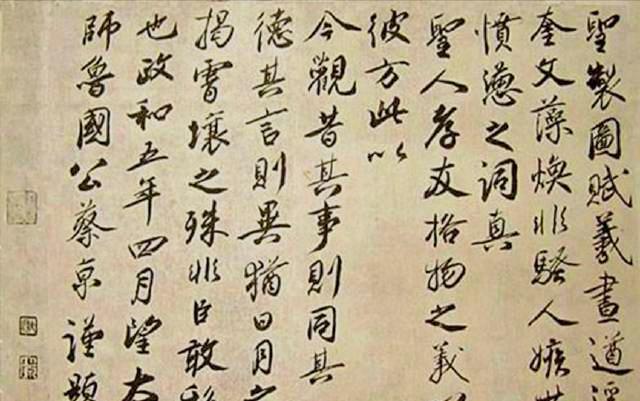 聖製圖賦羲畫遒
奎文藻煥非騷人嫉世
憤懣之詞真
聖人孝友格物之義
彼方此以
今觀昔其事則同其
德其言則異猶日月之
揭霄壤之殊非臣敢
也政和五年四月望太
師魯國公蔡京謹題